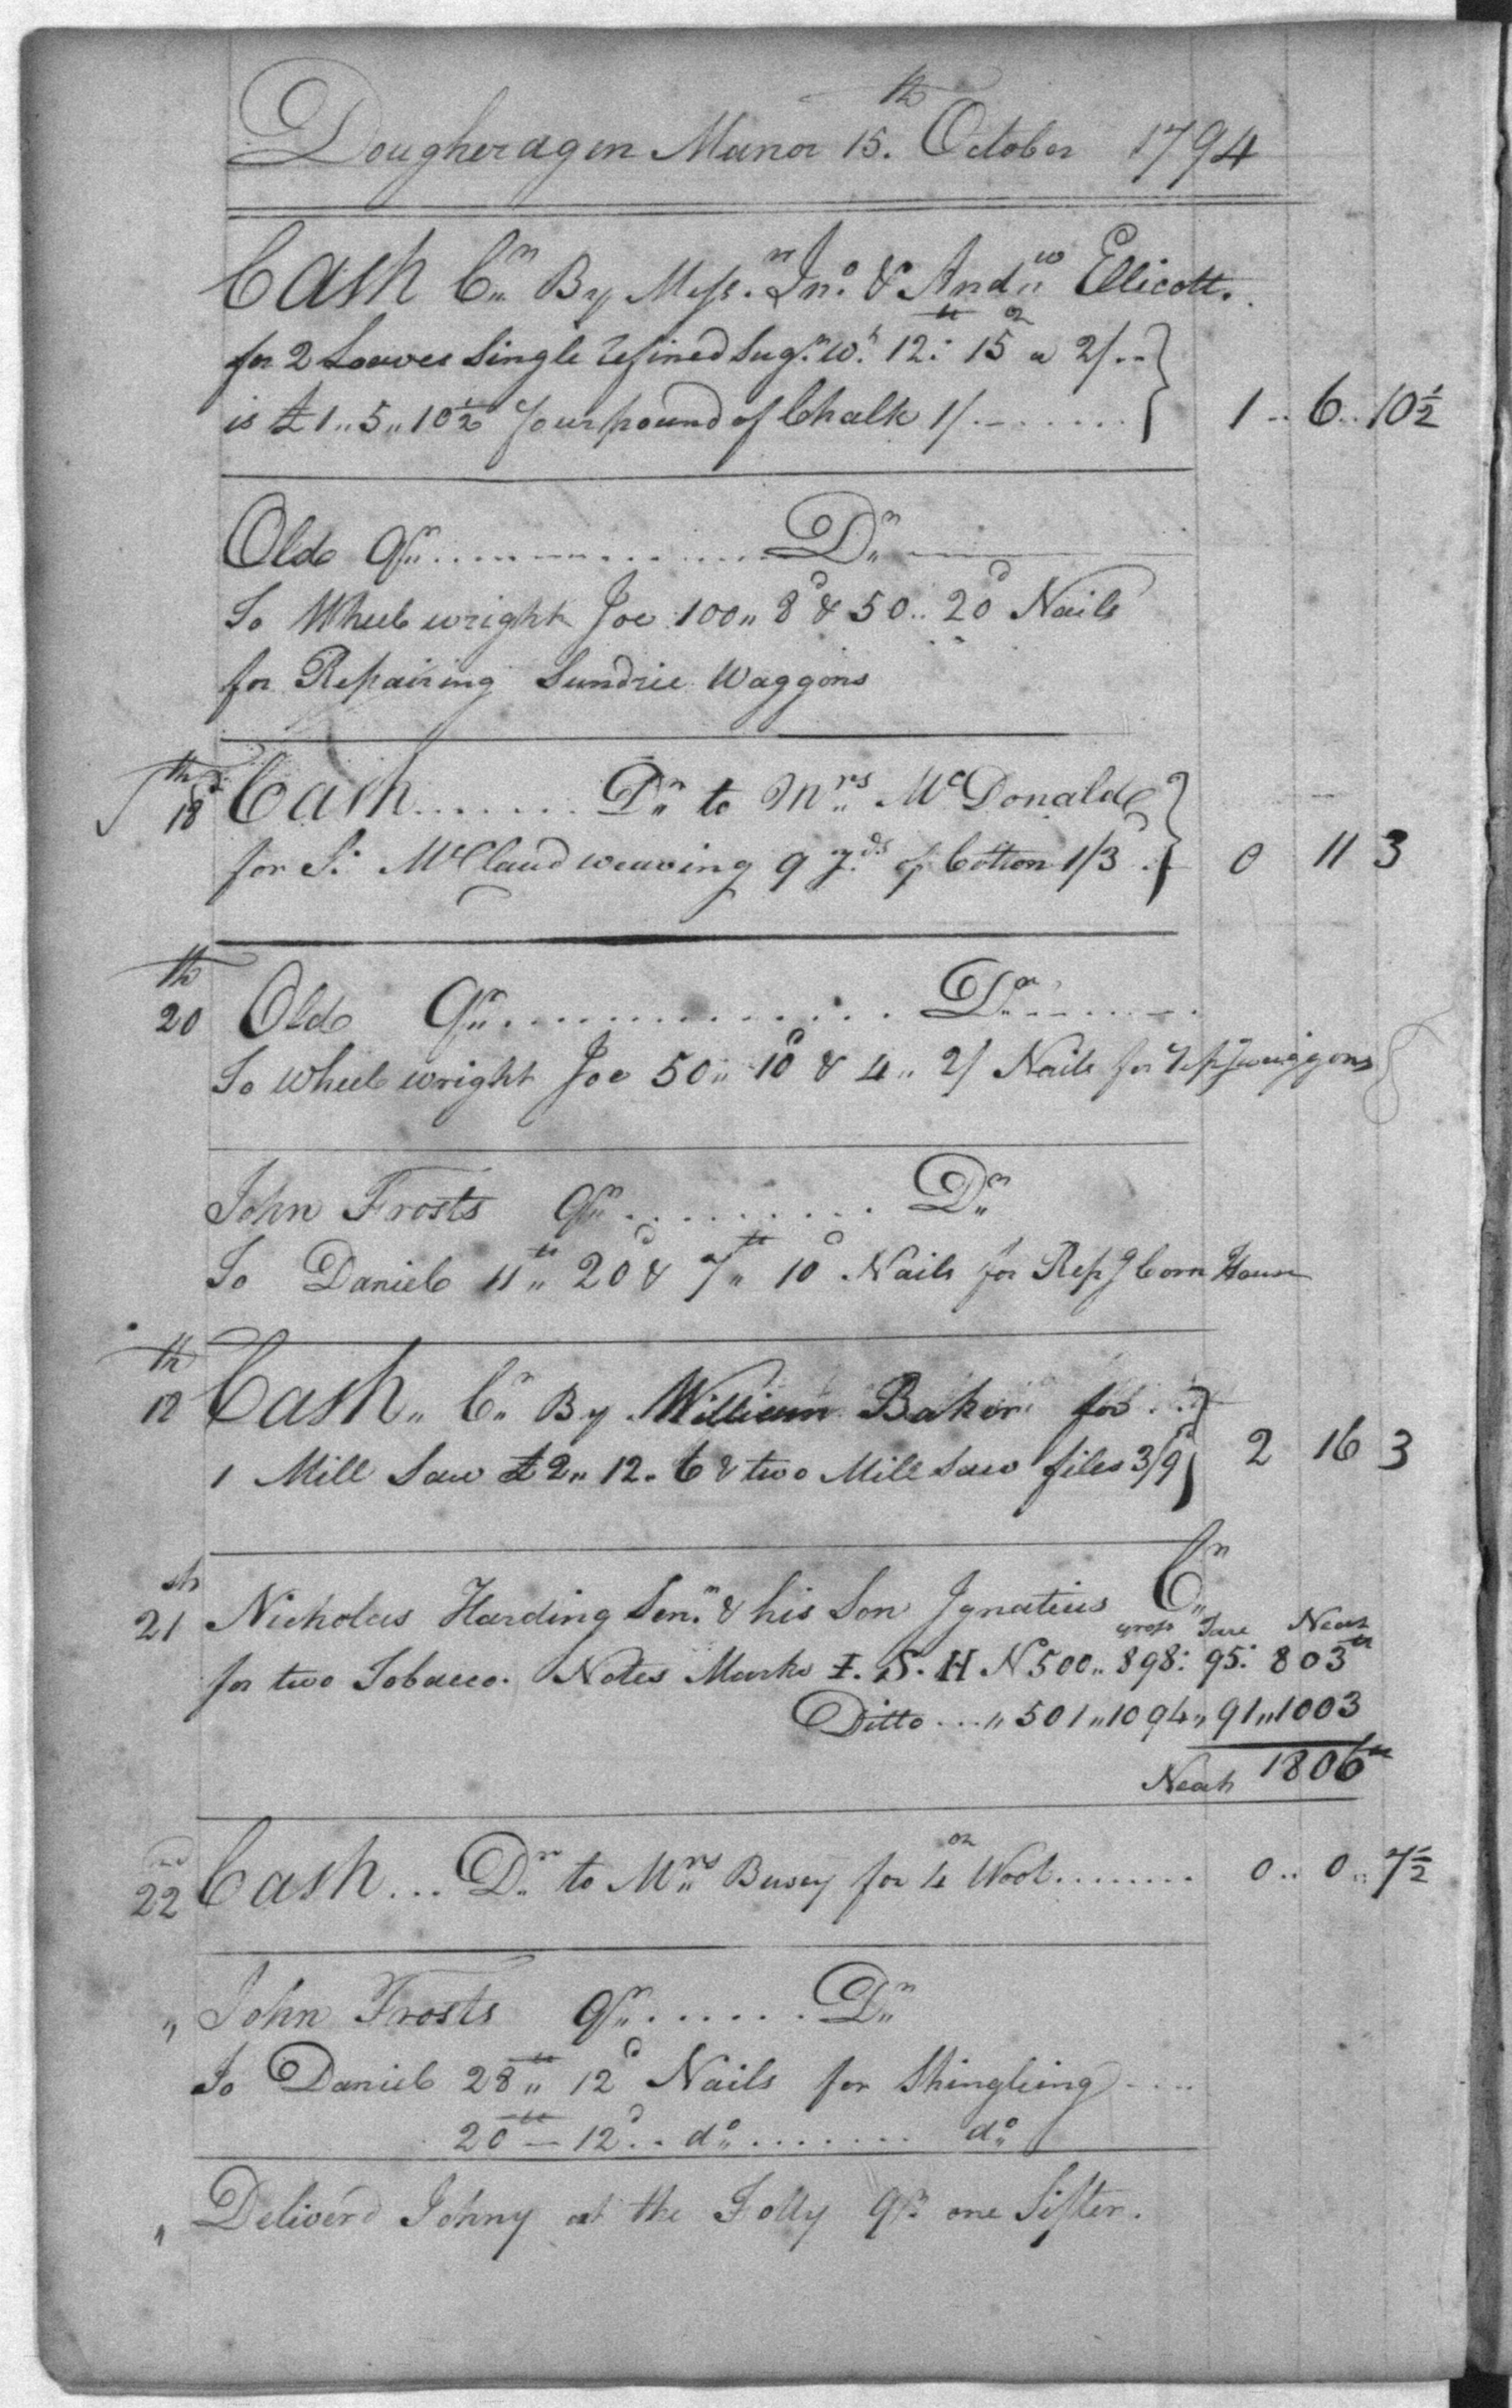 Dougheragen Manor 15.th October 1794
Cash Cr. By Messrs. Jno. & Andw. Ellicott.
for 2 Loaves Single refined Sugr. wt. 12: 15 oz a 2/..
is £1..5..10½ four pound of Chalk 1/........ 1..6..10½
Olde Qr................Dr.
To Wheele wright Joe 100,, 8d & 50.. 20d Nails
for Repairing Sundrie Waggons
18th Cash....... Dr. to Mrs. McDonalde
for S. McClaud weaving 9 yds. of Cotton 1/3.. 0 11 3
20th Olde Qr............... Dr........
To wheele wright Joe 50,, 10d & 4,, 2/ Nails for waggons
John Frosts Qr........... Dr.
To Daniele 11lb,, 20d & 7lb,, 10d Nails for Repg Corn House
12th Cash,, Cr. By William Baker for..
1 Mill Saw £2,, 12. 6 & two Mill Saw files 3/9 2 16 3
21st Nicholas Harding Senr. & his Son Ignatius Cr.
gross Tare Neat
for two Tobacco. Notes Marks I. S. H No 500.. 898: 95: 803lb
Ditto...,, 501,, 1094,, 91,, 1003
Neat 1806lb
22nd Cash... Dr. to Mrs. Busey for 4 oz Wool......... 0.. 0.. 7½
,, John Frosts Qr....... Dr.
To Daniele 28lb,, 12d Nails for Shingleing....
20lb — 12d.. do......... do
,, Deliverd Johny at the Folly Qr. one Sifter.